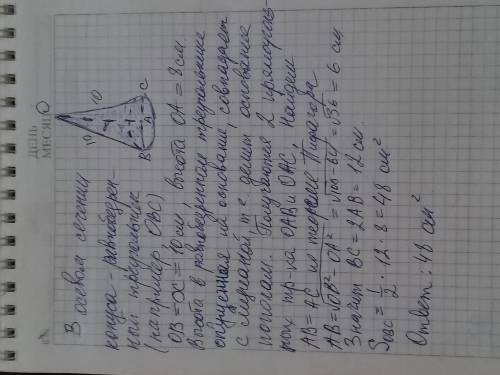 ДЕНЬ
МЕСЯЦ
10
10
O
B
A
C
В осевом сечении
конуса - равнобедрен-
ный треугольник
(например OBC)
OB = OC = 10 см высота OA = 8 см.
Высота в равнобедренном треугольнике
опущенная на основание, совпадает
с медианой, т.е делит основание
пополам. Получаются 2 прямоуголь-
ных тр-ка OAB и OAC. Найдем
AB = AC из теоремы Пифагора
AB = √OB² - OA² = √100 - 64 = √36 = 6 см
Значит BC = 2AB = 12 см.
SOBC = 1/2 · 12 · 8 = 48 см²
Ответ: 48 см²